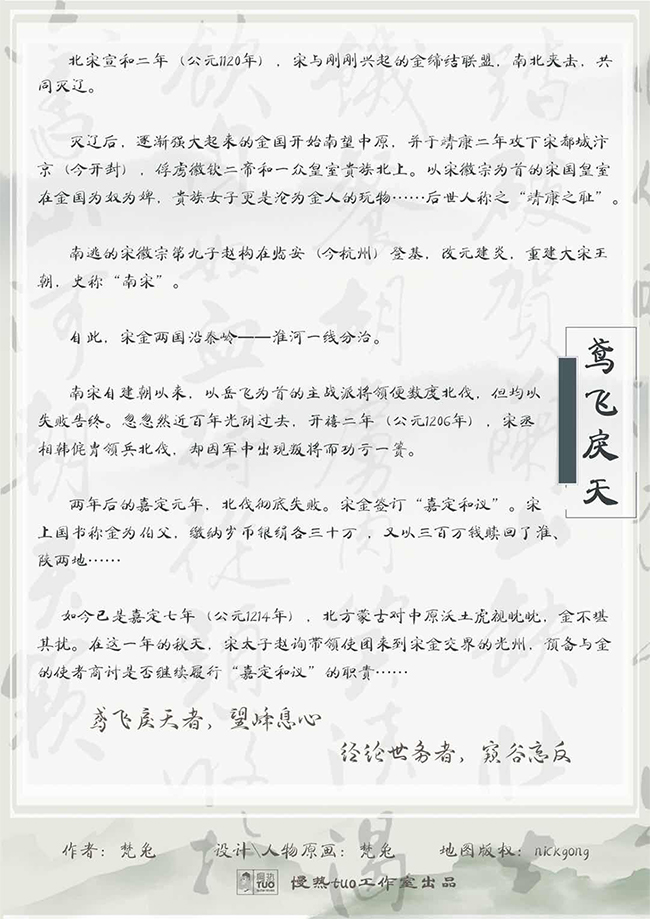 北宋宣和二年（公元1120年），宋与刚刚兴起的金缔结联盟，南北夹击，共
同灭辽。
灭辽后，逐渐强大起来的金国开始南望中原，并于靖康二年攻下宋都城汴
京（今开封），俘虏徽钦二帝和一众皇室贵族北上。以宋徽宗为首的宋国皇室
在金国为奴为婢，贵族女子更是沦为金人的玩物……后世人称之“靖康之耻”。
南逃的宋徽宗第九子赵构在临安（今杭州）登基，改元建炎，重建大宋王
朝，史称“南宋”。
自此，宋金两国沿秦岭——淮河一线分治。
南宋自建朝以来，以岳飞为首的主战派将领便数度北伐，但均以
失败告终。忽忽然近百年光阴过去，开禧二年（公元1206年），宋丞
相韩侂胄领兵北伐，却因军中出现叛将而功亏一篑。
两年后的嘉定元年，北伐彻底失败。宋金签订“嘉定和议”。宋
上国书称金为伯父，缴纳岁币银绢各三十万，又以三百万钱赎回了淮、
陕两地……
如今已是嘉定七年（公元1214年），北方蒙古对中原沃土虎视眈眈，金不堪
其扰。在这一年的秋天，宋太子赵询带领使团来到宋金交界的光州，预备与金
的使者商讨是否继续履行“嘉定和议”的职责……
鸢飞戾天者，望峰息心
经纶世务者，窥谷忘反
鸢飞戾天
作者：梵兔 设计\人物原画：梵兔 地图版权：nickgong
TUO 慢热tuo工作室出品